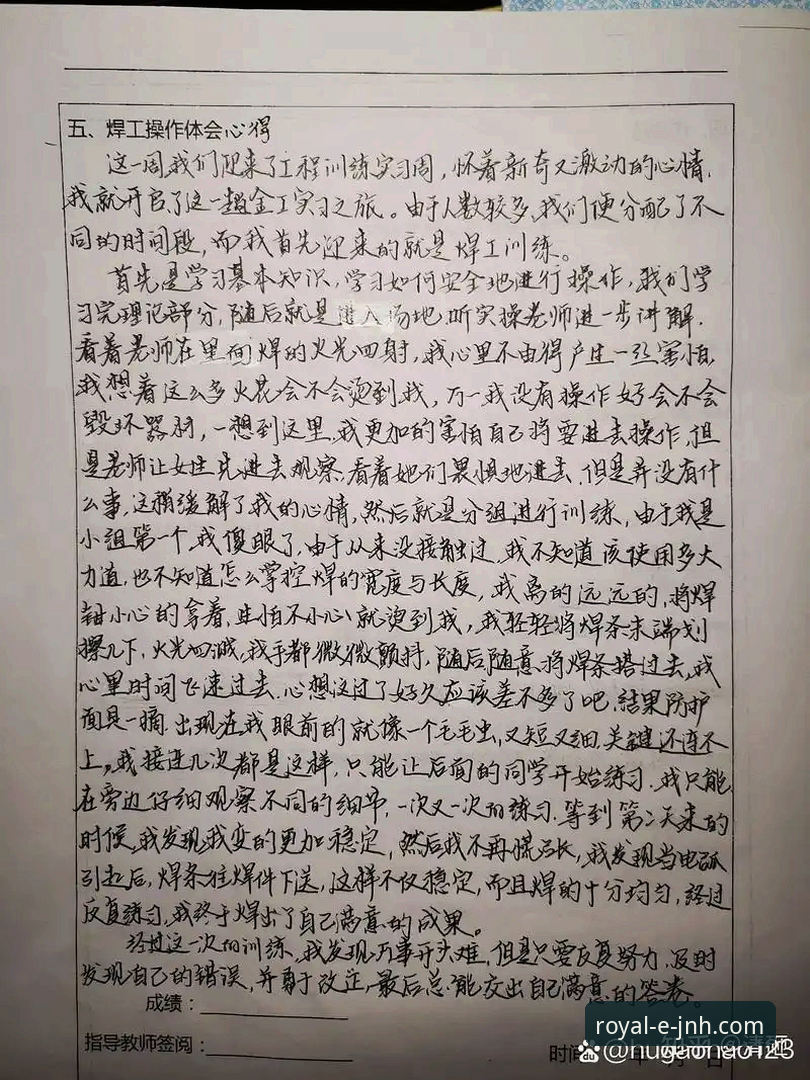 五、焊工操作体会心得
这一周,我们迎来了工程训练实习周,怀着新奇又激动的心情,
我就开启了这一趟金工实习之旅。由于人数较多,我们便分配了不
同的时间段,而我首先迎来的就是焊工训练。
首先是学习基本知识,学习如何安全地进行操作,我们学
习完理论部分,随后就是进入场地,听实操老师进一步讲解.
看着老师在里面焊的火光四射,我心里不由得产生一丝害怕,
我想着这么多火花会不会烫到我,万一我没有操作好会不会
毁坏器材,一想到这里,我更加的害怕自己将要进去操作,但
是老师让女生先进去观察,看着她们畏惧地进去,但是并没有什
么事,这稍缓解了我的心情,然后就是分组进行训练,由于我是
小组第一个,我傻眼了,由于从来没接触过,我不知道该使用多大
力道,也不知道怎么掌控焊的宽度与长度,我离的远远的,将焊
钳小心的拿着,生怕不小心就烫到我,我轻轻将焊条末端划
擦几下,火光四溅,我手都微微颤抖,随后,随意将焊条搭过去,我
心里时间飞速过去,心想这过了好久应该差不多了吧,结果防护
面具一摘,出现在我眼前的就像一个毛毛虫,又短又细,关键还连不
上,我接连几次都是这样,只能让后面的同学开始练习,我只能
在旁边仔细观察不同的细节,一次又一次的练习,等到第二天来的
时候,我发现我变的更加稳定,然后我不再慌张,我发现当电弧
引起后,焊条往焊件下送,这样不仅稳定,而且焊的十分均匀,经过
反复练习,我终于焊出了自己满意的成果。
经过这一次的训练,我发现万事开头难,但是只要反复努力,及时
发现自己的错误,并勇于改正,最后总能交出自己满意的答卷。
成绩:
指导教师签阅:
时间
royal-e-jnh.com
@hugaonao123